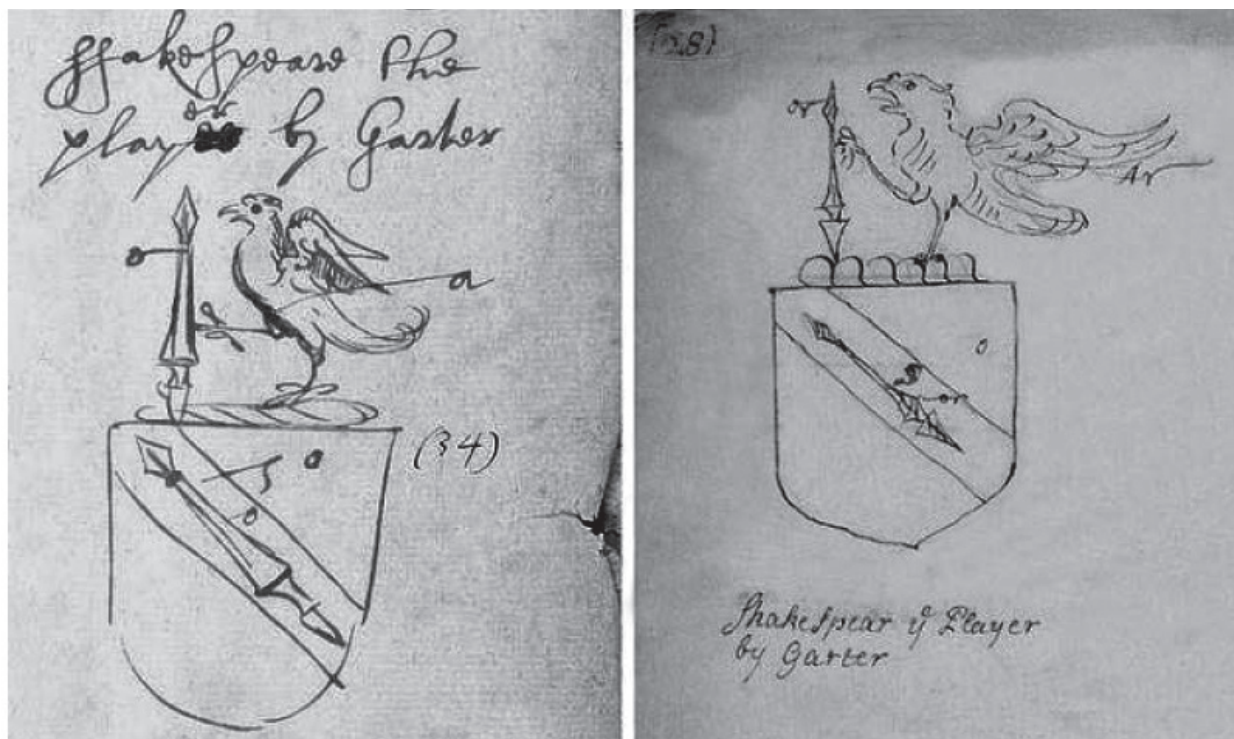 Shakespeare the
player by Garter
o
a
(34)
o
S
o
(28)
or
Ar
o
S
or
Shakespear yͤ Player
by Garter